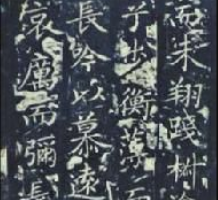 而未翔踐椒塗
兮步衡薄而
長吟以慕遠
哀厲而彌長